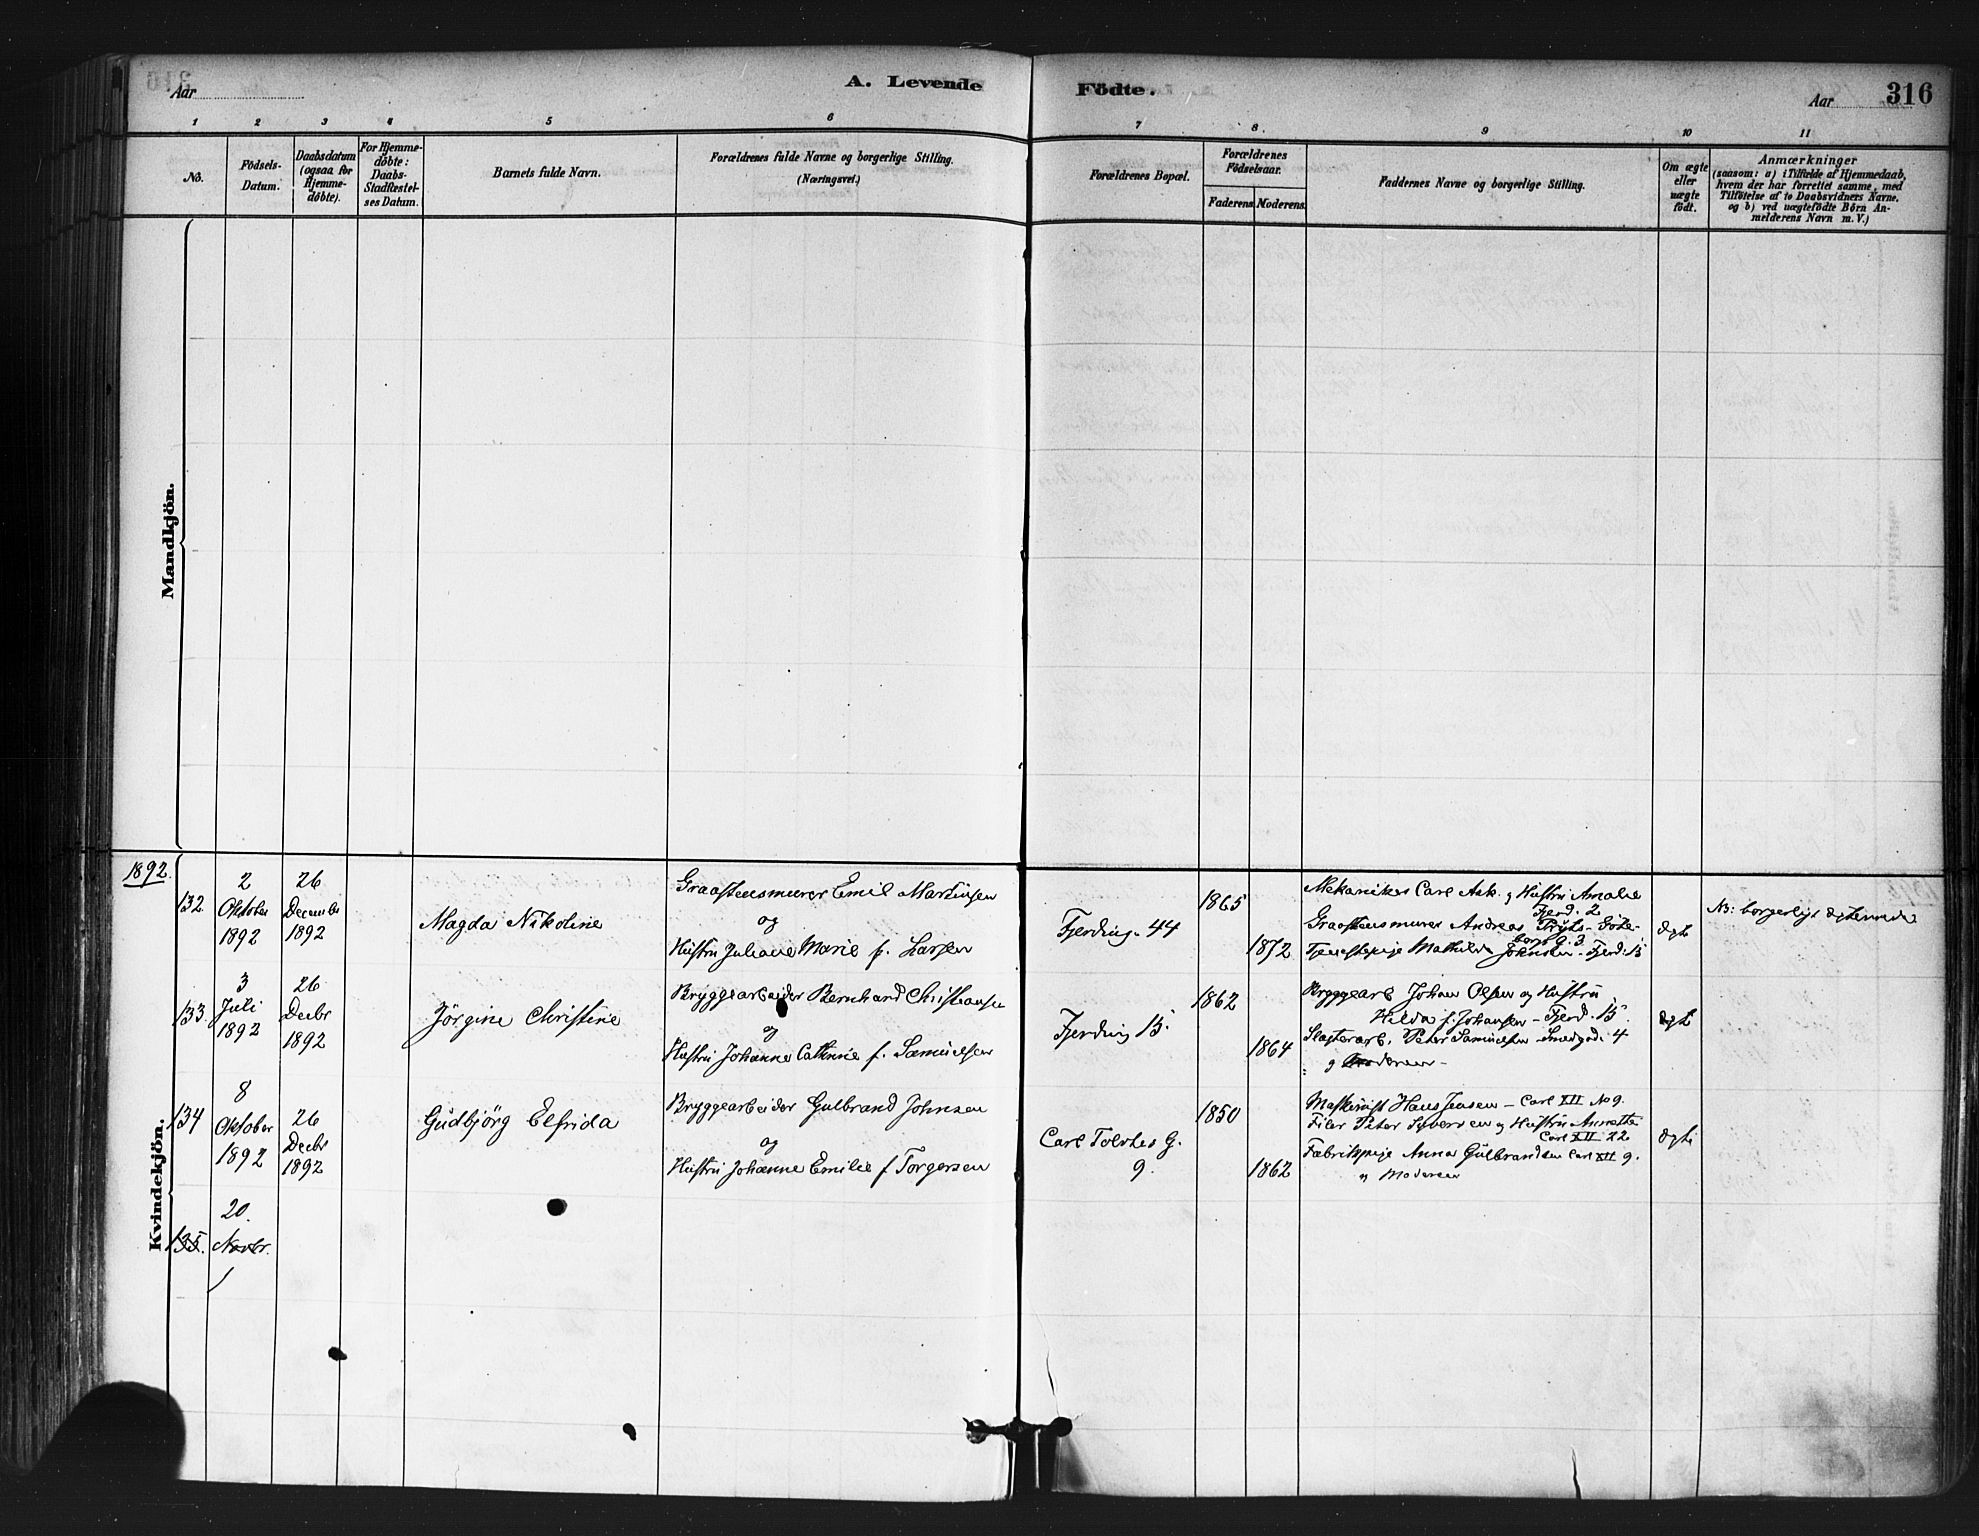 Aar
A. Levende
Födte.
Aar
316
1 2 3 4 5 6 7 8. 9 10 11
No.
Födsels-
Datum.
Daabsdatum
(ogsaa for
Hjemme-
döbte).
For Hjemme-
döbte:
Daabs-
Stadfæstel-
ses Datum.
Barnets fulde Navn.
Forældrenes fulde Navne og borgerlige Stilling.
(Næringsvei.)
Forældrenes Bopæl.
Forældrenes
Födselsaar.
Faderens. Moderens.
Faddernes Navne og borgerlige Stilling.
Om ægte
eller
uægte
födt.
Anmærkninger
(saasom: a) i Tilfælde af Hjemmedaab,
hvem der har forrettet samme, med
Tilföielse af to Daabsvidners Navne.
og b) ved uægtefödte Börn An-
melderens Navn m. V.)
Mandkjön.
Kvindekjön.
1892.
132.
2
Oktober
1892
26
December
1892
Magda Nikoline
Graastensmurer Emil Martinsen
og
Hustru Juliane Marie f. Larsen
Fjerding. 44
1865
1872
Mekaniker Carl Ask. og Hustru Amalie
Fjerd. 2
Graastensmurer Andreas
borg g. 3
Tjenestepige Mathilde Johnsen - Fjerd. 15
Ægte
No: borgerligt
133.
3
Juli
1892
26
Decbr
1892
Jörgine Christine
Bryggearbeider Bernhard Christiansen
og
Hustru Johanne Cathrine f. Samuelsen
Fjerding 15.
1862
1864
Bryggearb Johan Olsen og Hustru
Hilda f. Johansen - Fjerd. 15.
Slagterarb. Peter Samuelsen Smedgd. 4
" og Moderen -
Ægte
134
8
Oktober
1892
26
Decbr
1892
Gudbjörg Elfrida
Bryggearbeider Gulbrand Johnsen
og
Hustru Johanne Emilie f Torgersen
Carl Tolvtes G.
9.
1850
1862
Maskinist Hans Jensen - Carl XII No 9.
Filer Peter Syversen og Hustru Annette
Carl XII 22
Fabrikpige Anna Gulbrandsen Carl XII 9.
og Moderen
Ægte
135.
20.
Novbr.